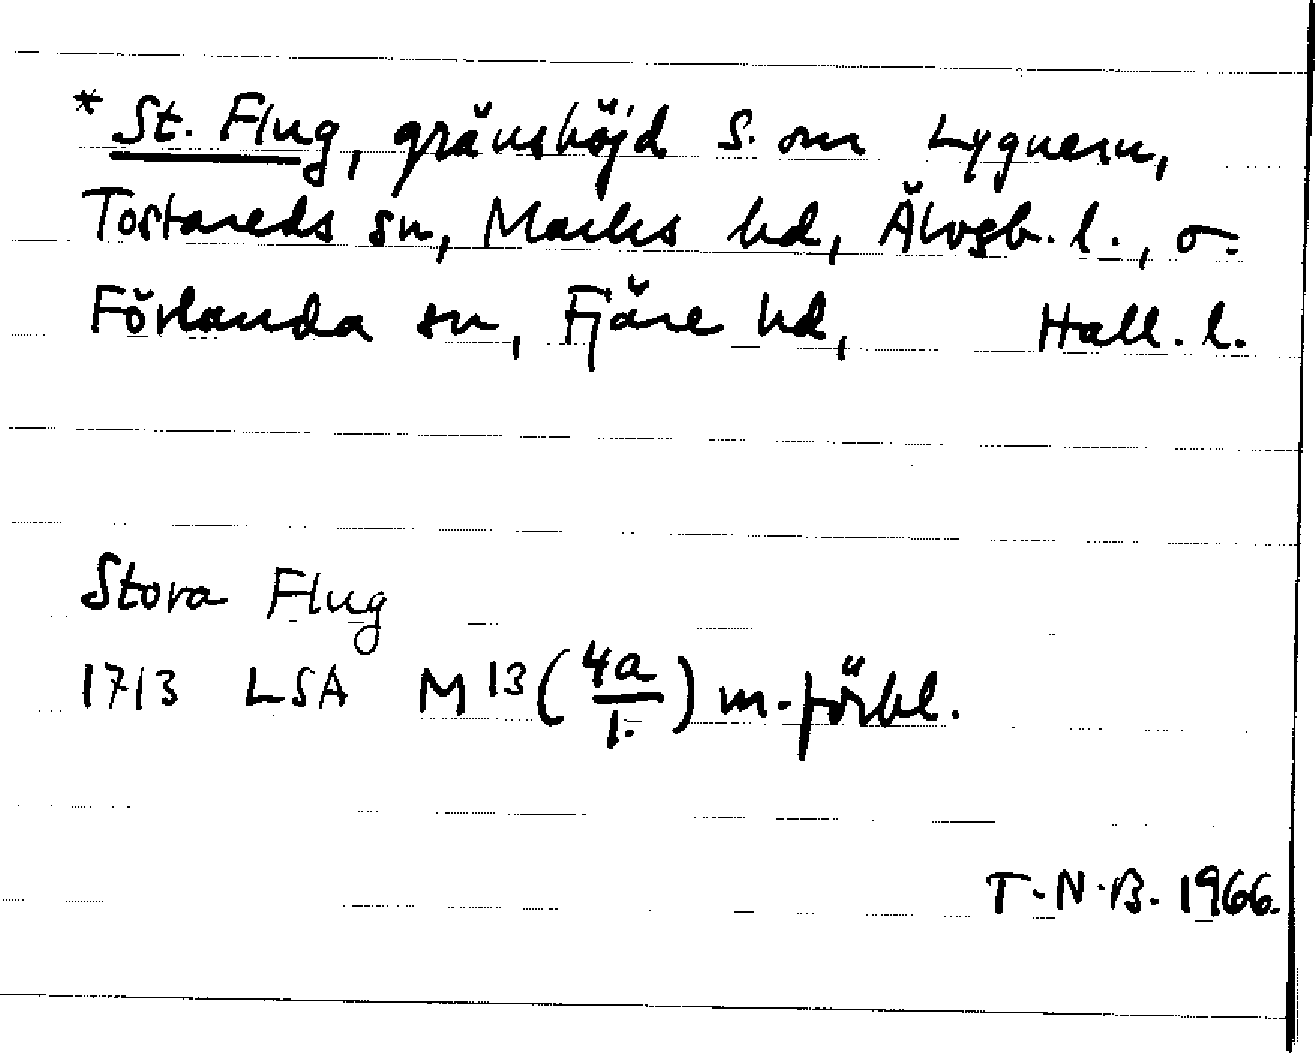 * St. Flug, gränshöjd S. om Lygnern,
Tostareds sn, Marks hd, Älvsb. l., o.
Förlanda sn, Fjäre hd, Hall. l.
Stora Flug
1713 LSA M 13 (4a/1.) m-förbl.
T.N.B. 1966.